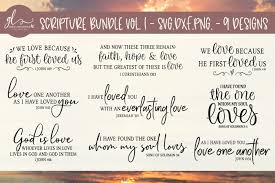 SCRIPTURE BUNDLE VOL 1 - SVG, DXF, PNG, - 9 DESIGNS
WE LOVE BECAUSE
he first loved us
1 JOHN 4:19
AND NOW THESE THREE REMAIN:
faith, hope & love
BUT THE GREATEST OF THESE IS love
1 CORINTHIANS 13:13
we love BECAUSE
HE FIRST LOVED US
1 JOHN 4:19
love ONE ANOTHER
AS I HAVE LOVED you
I HAVE LOVED you
WITH AN everlasting love
I HAVE found
THE ONE
WHOM MY SOUL
loves
SONG OF SOLOMON 3:4
God is love
WHOEVER LIVES IN LOVE
LIVES IN GOD AND GOD IN THEM
I HAVE FOUND THE ONE
whom my soul loves
SONG OF SOLOMON 3:4
AS I HAVE LOVED you
love one another